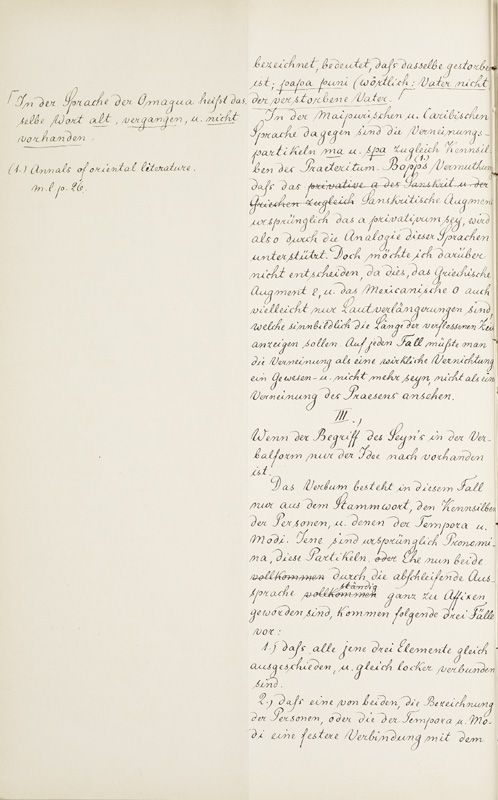 ⌈In der Sprache der Omagua heißt das
selbe Wort alt, vergangen, u. nicht
vorhanden.
(1.) Annals of oriental literature.
m.l p. 26.
bezeichnet, bedeutet, daſs dasselbe gestorben
ist; papa puni (wörtlich: Vater nicht)
der verstorbene Vater.⌈
In der Maipurischen u. Caribischen
Sprache dagegen sind die Verneinungs-
partikeln ma u. spa zugleich Kennsil-
ben des Praeteritum. Bopp's (1) Vermuthung
daſs das privative a des Sanskrit u. der
Griechen zugleich Sanskritische Augment
ursprünglich das a privativum sey, wird
also durch die Analogie dieser Sprachen
unterstützt. Doch möchte ich darüber
nicht entscheiden, da dies, das Griechische
Augment ε, u. das Mexicanische o auch
vielleicht nur Lautverlängerungen sind,
welche sinnbildlich die Länge der verflossenen Zeit
anzeigen sollen. Auf jeden Fall müſste man
die Verneinung als eine wirkliche Vernichtung
ein Gewesen- u. nicht mehr seyn, nicht als eine
Verneinung des Praesens ansehen.
III.,
Wenn der Begriff des Seyn's in der Ver-
balform nur der Idee nach vorhanden
ist.
Das Verbum besteht in diesem Fall
nur aus dem Stammwort, den Kennsilben
der Personen, u. denen der Tempora u.
Modi. Jene sind ursprünglich Pronomi-
na, diese Partikeln. oder Ehe nun beide
vollkommen durch die abschleifende Aus-
sprache vollkommen ständig ganz zu Affixen
geworden sind, kommen folgende drei Fälle
vor:
1.) daſs alle jene drei Elemente gleich
ausgeschieden, u. gleich locker verbunden
sind.
2.) daſs eine von beiden, die Bezeichnung
der Personen, oder die der Tempora u. Mo-
di eine festere Verbindung mit dem